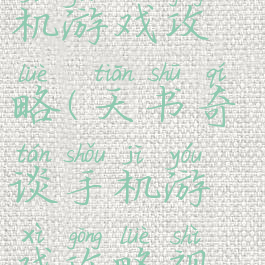 机游戏攻
lüè tiān shū qí
略(天书奇
tán shǒu jī yóu
谈手机游
xì gōng lüè shì
戏攻略视